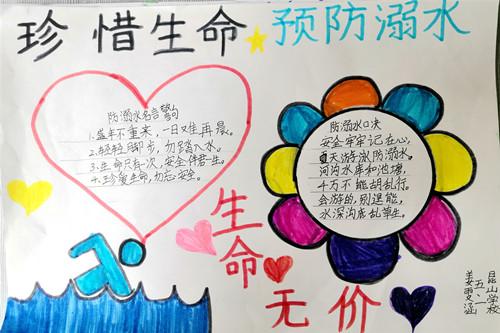 珍惜生命 预防溺水
防溺水名言警句
1.盛年不重来,一日难再晨。
2.轻轻脚步,勿踏入水。
3.生命只有一次,安全伴君一生。
4.珍爱生命,勿忘安全。
防溺水口决
安全牢牢记在心,
夏天游泳防溺水。
河沟水库和池塘,
千万不能胡乱行。
会游的,别逞能,
水深沟底乱草生。
生命
无价
昆山学校
五.二